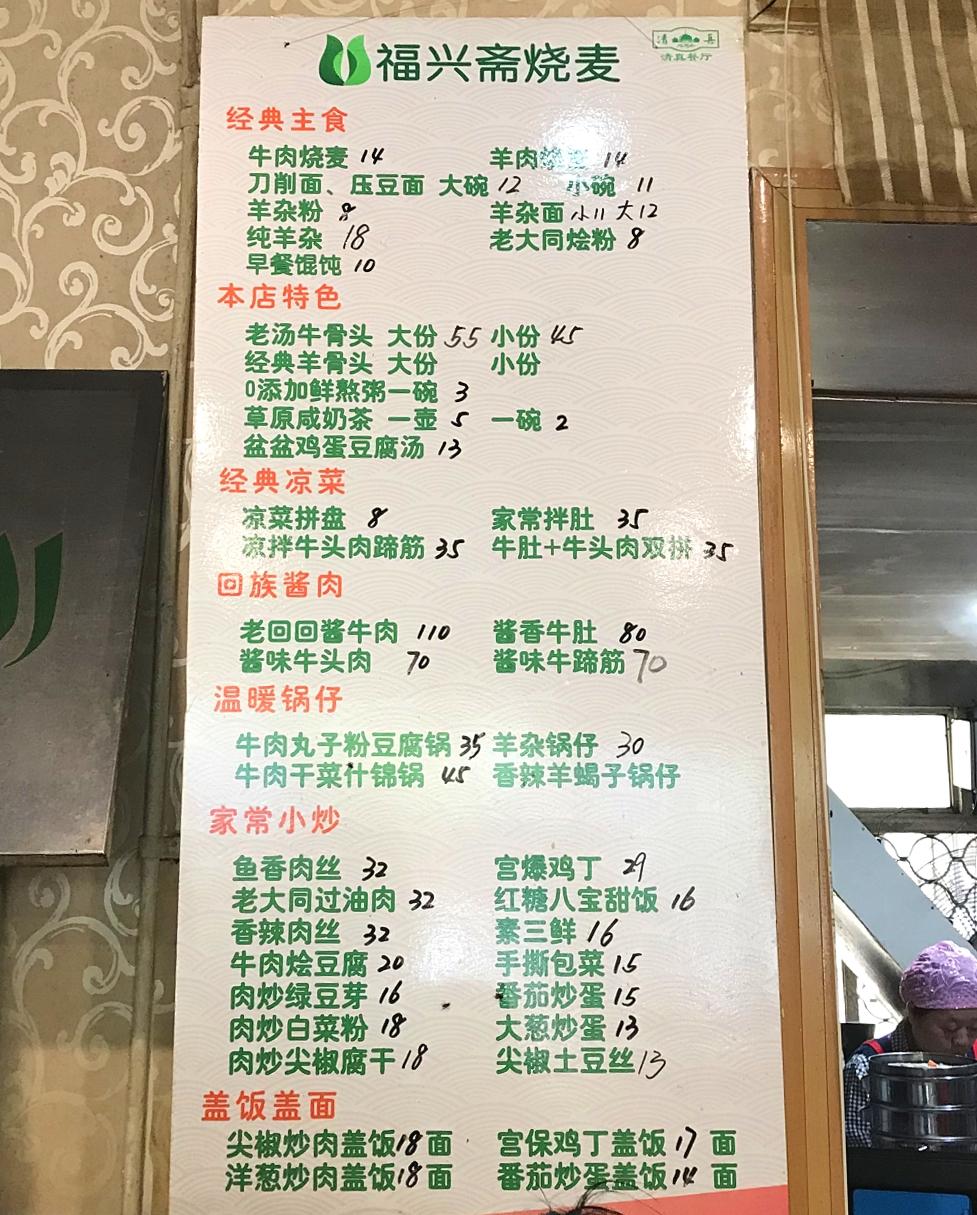 福兴斋烧麦
清真
清真餐厅
经典主食
牛肉烧麦 14 羊肉烧麦 14
刀削面、压豆面 大碗 12 小碗 11
羊杂粉 羊杂面 小11 大12
纯羊杂 18 老大同烩粉 8
早餐馄饨 10
本店特色
老汤牛骨头 大份 55 小份 45
经典羊骨头 大份 小份
0添加鲜熬粥一碗 3
草原咸奶茶 一壶 5 一碗 2
盆盆鸡蛋豆腐汤 13
经典凉菜
凉菜拼盘 8 家常拌肚 35
凉拌牛头肉蹄筋 35 牛肚+牛头肉双拼 35
回族酱肉
老回回酱牛肉 110 酱香牛肚 80
酱味牛头肉 70 酱味牛蹄筋 70
温暖锅仔
牛肉丸子粉豆腐锅 35 羊杂锅仔 30
牛肉干菜什锦锅 45 香辣羊蝎子锅仔
家常小炒
鱼香肉丝 32 宫爆鸡丁 29
老大同过油肉 32 红糖八宝甜饭 16
香辣肉丝 32 素三鲜 16
牛肉烩豆腐 20 手撕包菜 15
肉炒绿豆芽 16 番茄炒蛋 15
肉炒白菜粉 18 大葱炒蛋 13
肉炒尖椒腐干 18 尖椒土豆丝 13
盖饭盖面
尖椒炒肉盖饭 18 面 宫保鸡丁盖饭 17 面
洋葱炒肉盖饭 18 面 番茄炒蛋盖饭 14 面